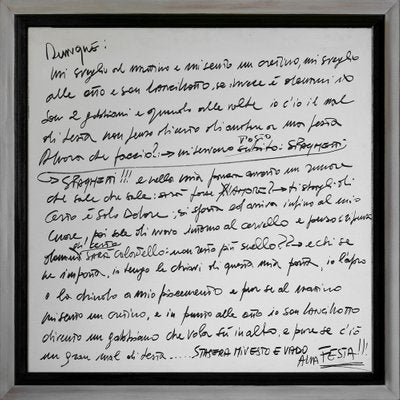 Dunque:
Mi sveglio al mattino e mi sento un cretino, mi sveglio
alle otto e son Lancillotto, se invece è domenica
son 2 gabbiani e quando alle volte io c'ho il mal
di testa non penso di certo di andare a una festa
Allora che faccio?.. → mi servono POSTO subito: SPAGHETTI
→ SPAGHETTI!!! e nella mia panza avverto un rumore
che sale che sale: sarà forse AMORE? → ti sbagli di
certo è solo dolore, si sposta ed arriva infino al mio
cuore, poi sale di nuovo intorno al cervello e penso
domani sarà un bordello: non sono più quello?? → e chi se
ne importa, io tengo le chiavi di questa mia porta, io l'apro
o la chiudo a mio piacimento e pur se al mattino
mi sento un cretino, e in punto alle otto io son Lancillotto
divento un gabbiano che vola su in alto, e pure se c'ho
un gran mal di testa..... STASERA MI VESTO E VADO ALLA FESTA!!!